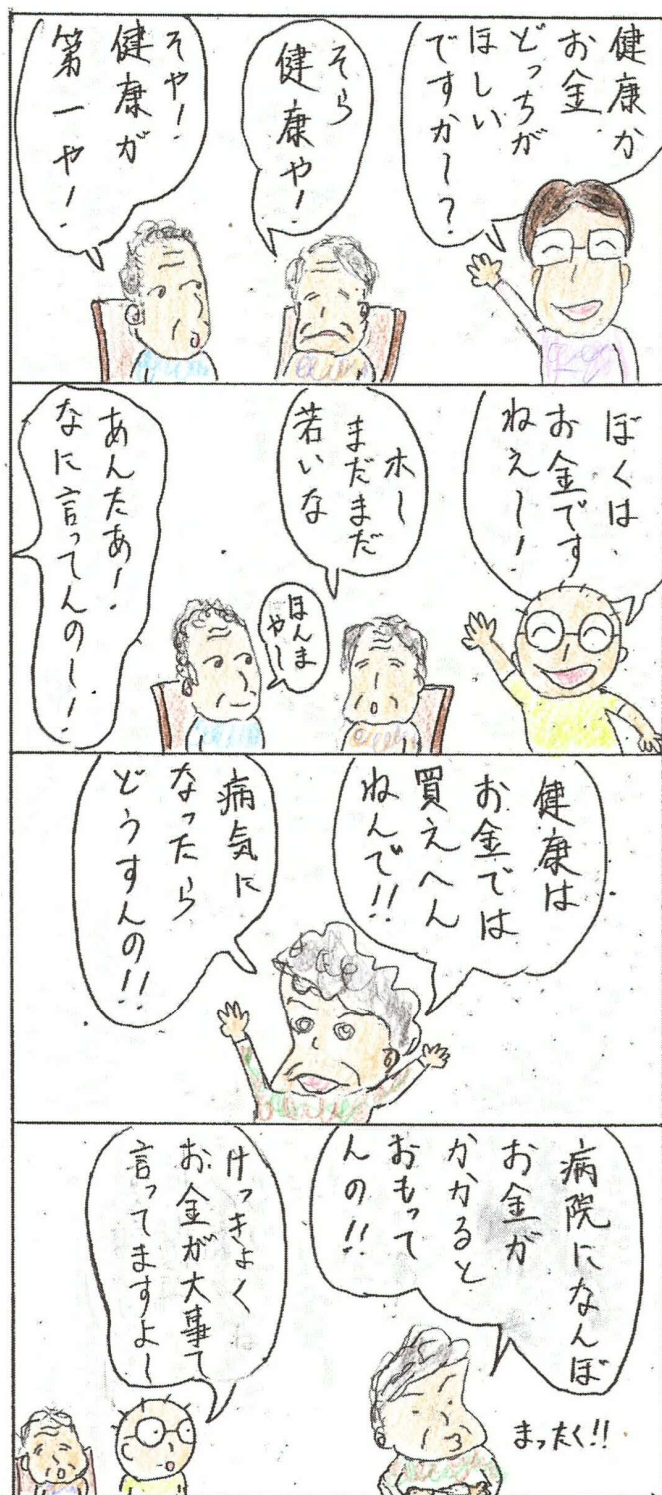 健康か
お金
どっちが
ほしい
ですか〜?
そら
健康や!
そや!
健康が
第一や!
ぼくは
お金です
ねえ〜!
ホー
まだまだ
若いな
ほんま
や〜
あんたあ!
なに言ってんの〜!
健康は
お金では
買えへん
ねんで!!
病気に
なったら
どうすんの!!
病院になんぼ
お金が
かかると
おもって
んの!!
まったく!!
けっきょく
お金が大事て
言ってますよ〜